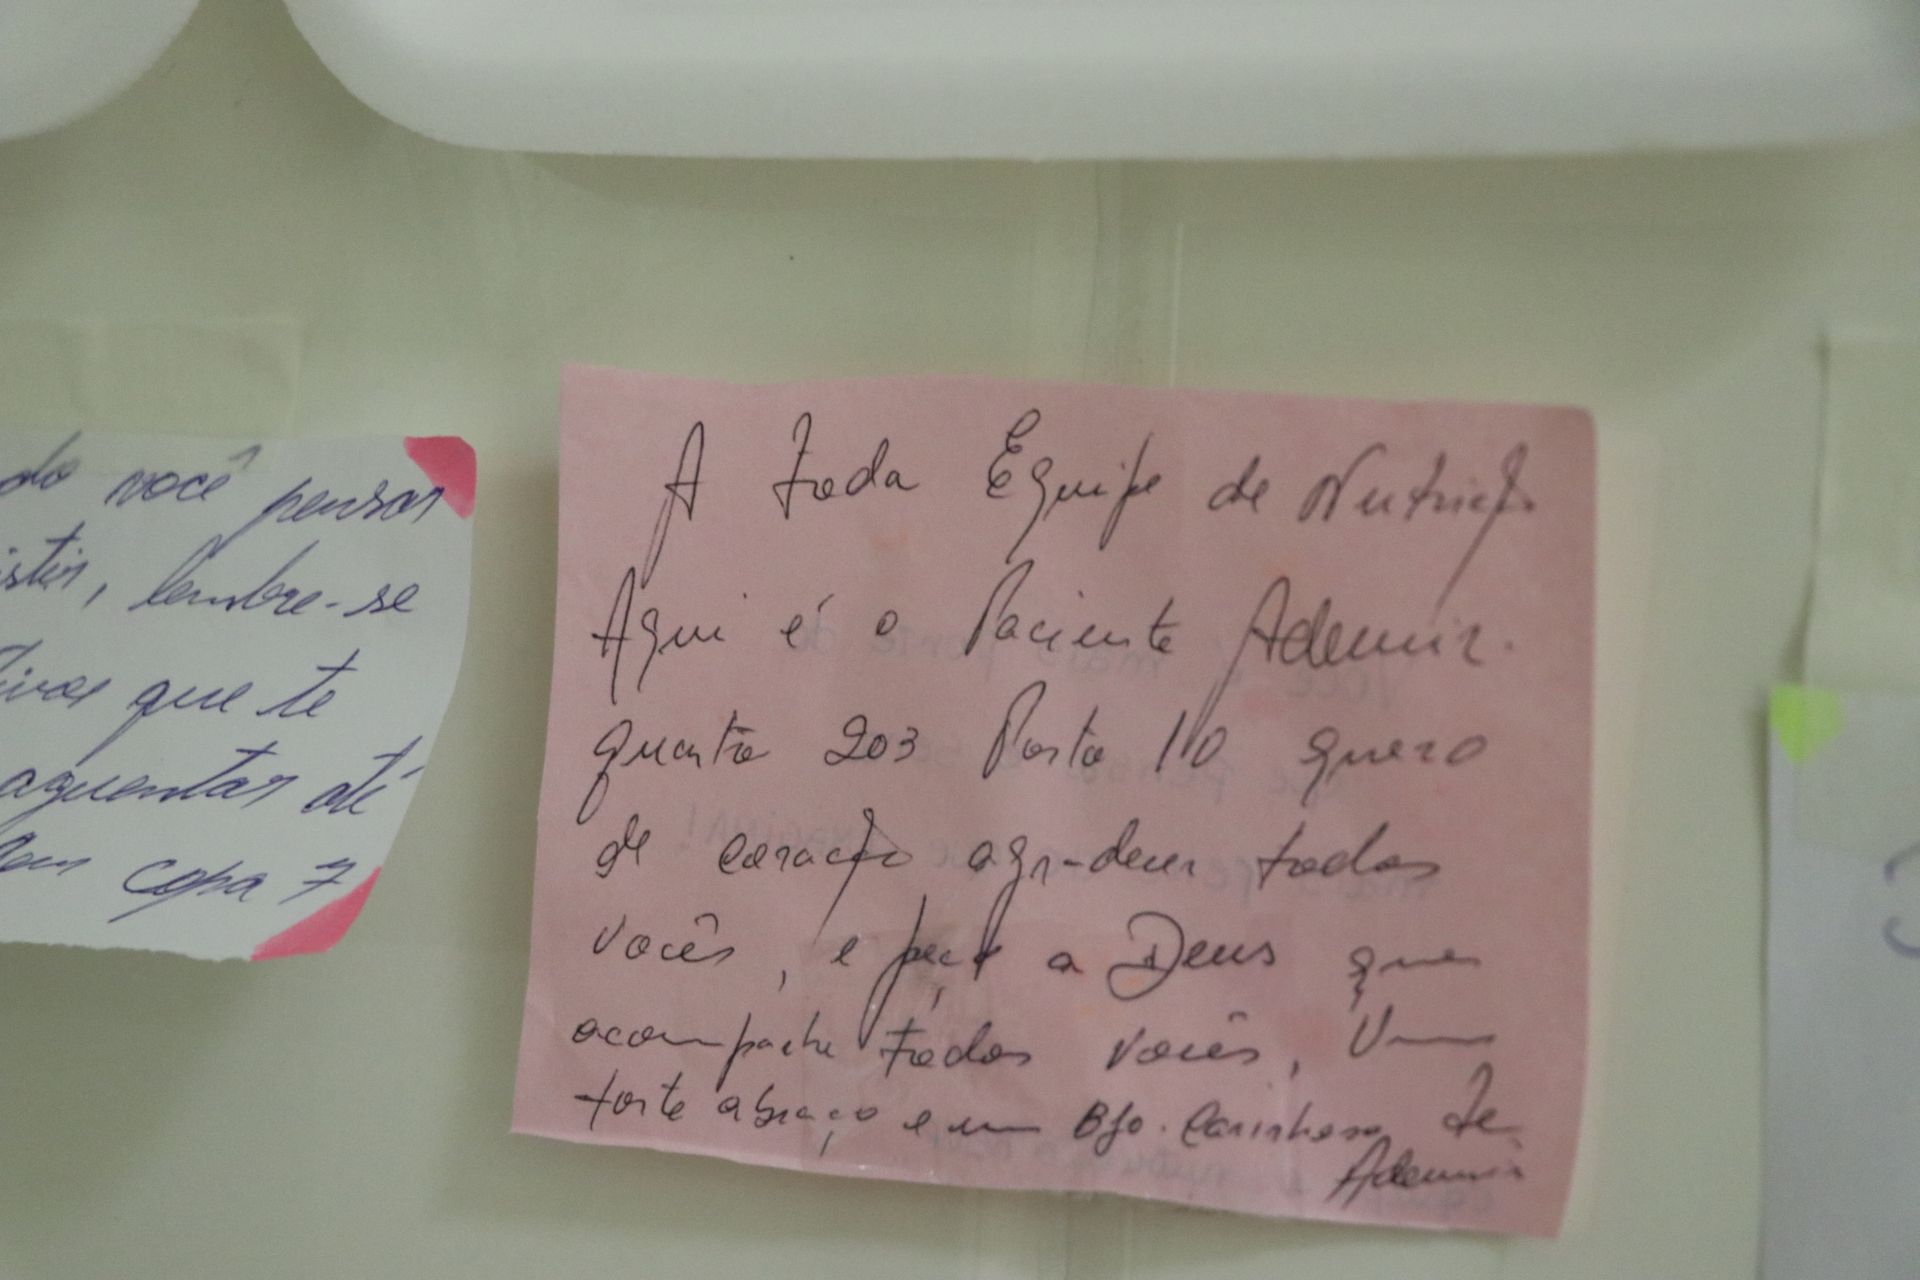 do você pensar
istir, lembre-se
que te
aguentar até
copa 7
A toda Equipe de Nutrição
Aqui é o Paciente Ademir.
quarto 203 Porta 110 quero
de coração agradecer todos
vocês, e peço a Deus que
acompanhe todos vocês, Um
forte abraço e um Bjo. Carinhoso de
Ademir